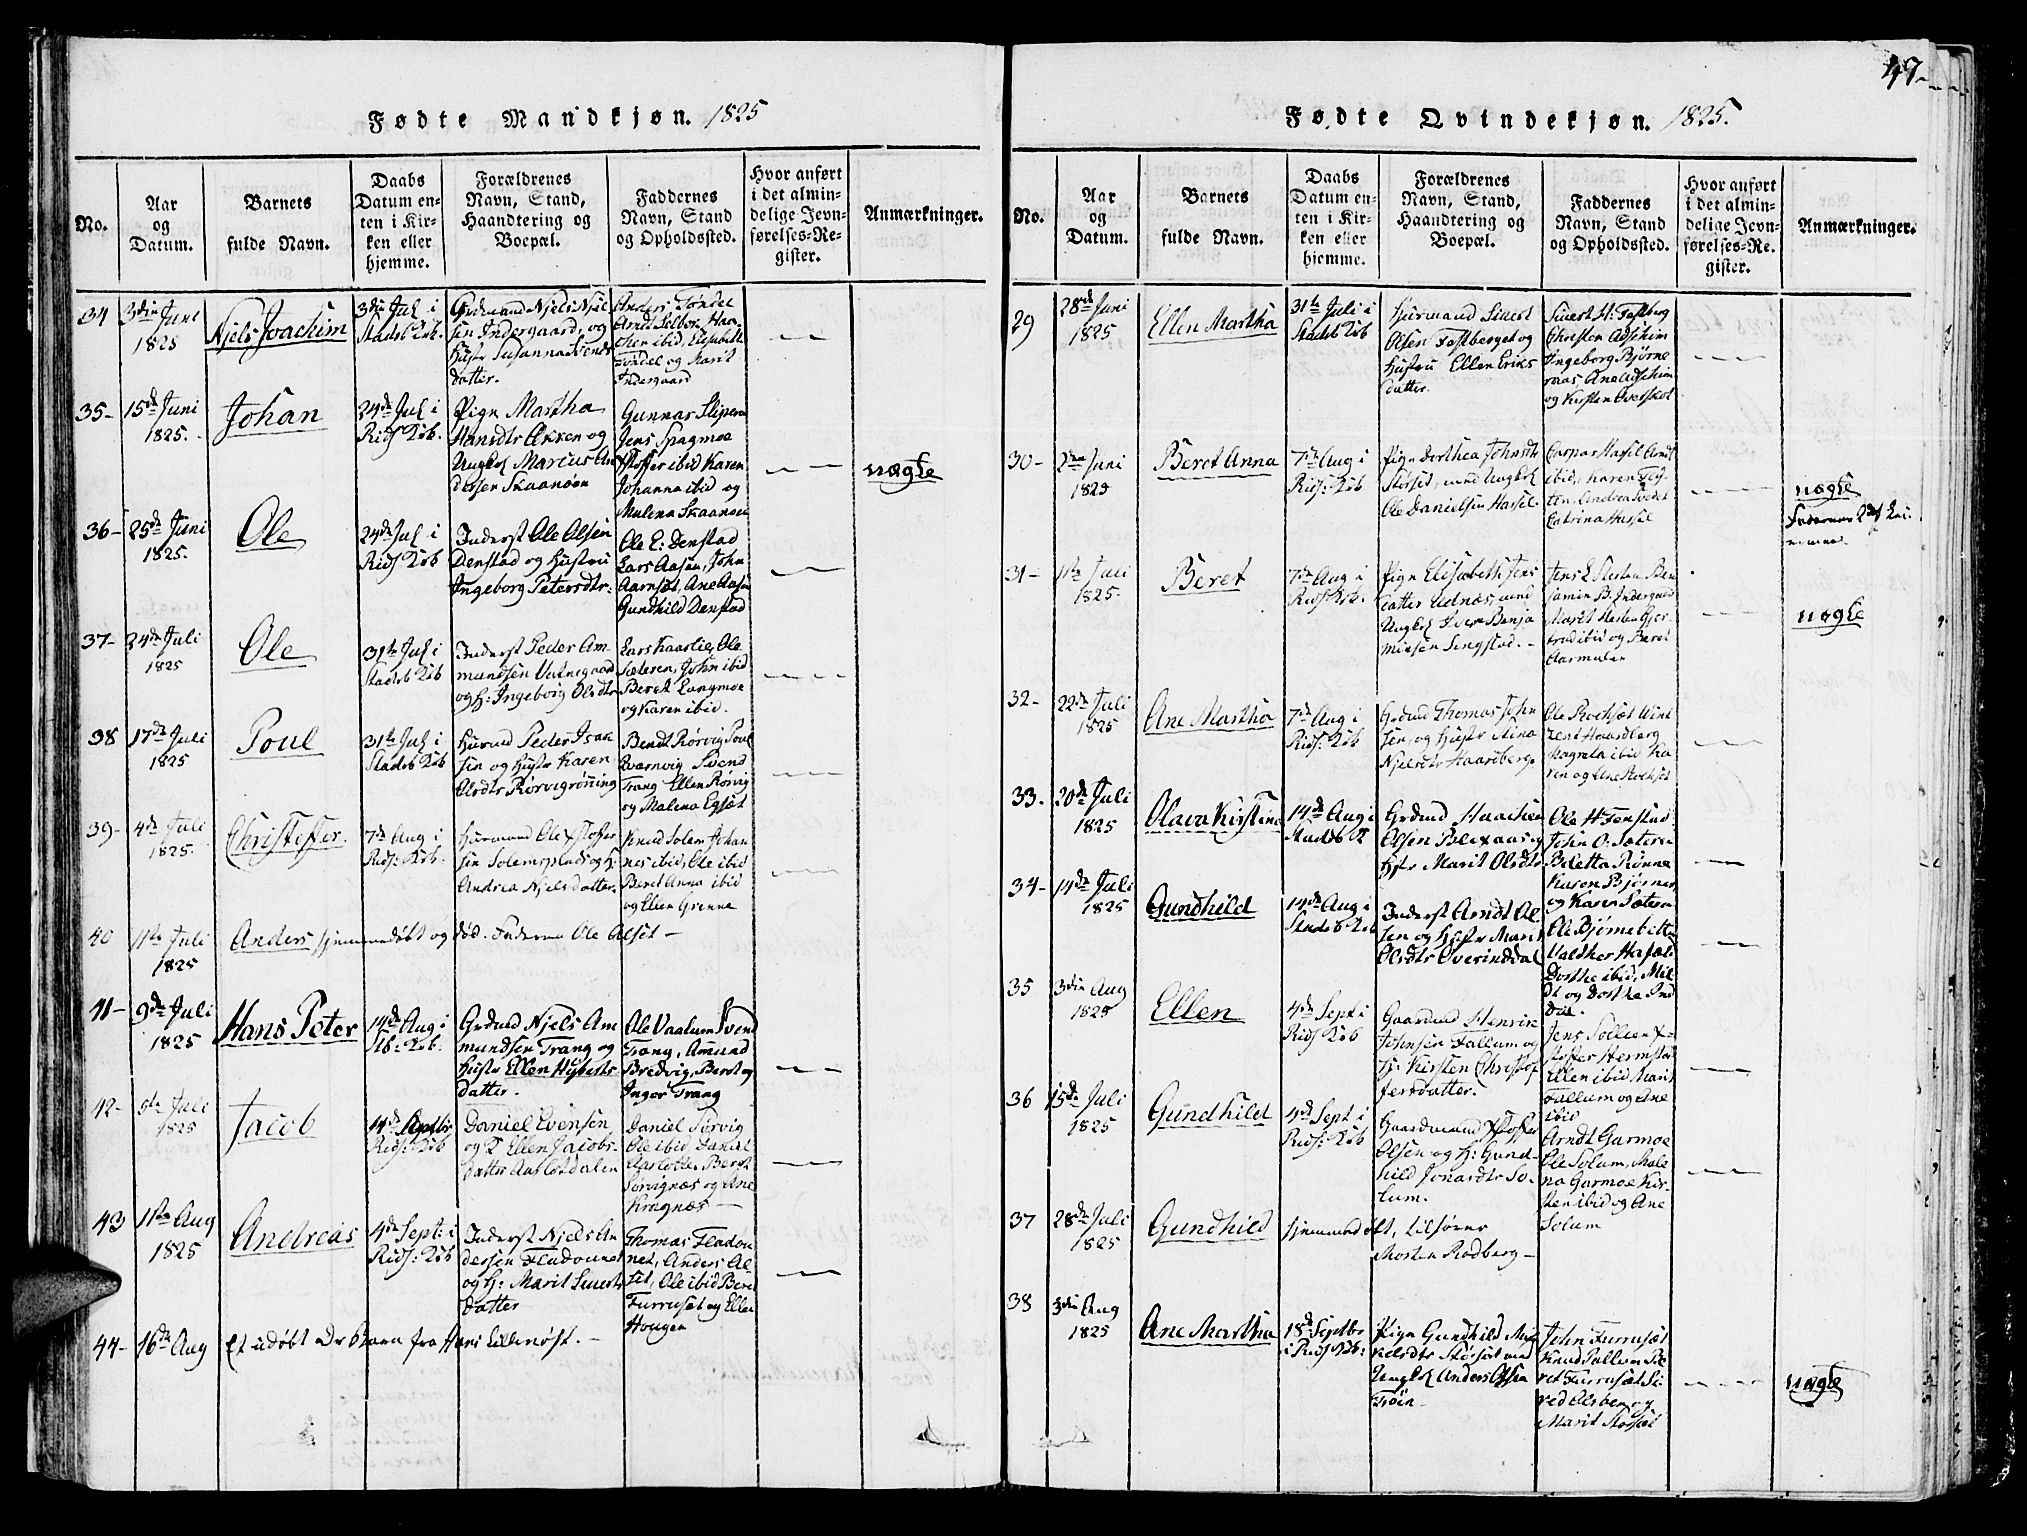 47
Fødte Mandkjøn. 1825
No.
Aar og Datum.
Barnets fulde Navn.
Daabs Datum enten i Kirken eller hjemme.
Forældrenes Navn, Stand, Haandtering og Boepæl.
Faddernes Navn, Stand og Opholdssted.
Hvor anført i det almindelige Jevnførelses-Register.
Anmærkninger.
34
3die Juni
1825
Niels Joachim
3die Jul i
Stadsb Kib.
Grdmand Njels Njel
sen Indergaard, og
Hustr Susanna Svends
datter.
Anders Tøndel
Arnt Selboe Haa
chen ibid, Elisabeth
Tøndel og Marit
Indergaard
35-
15de Juni
1825.
Johan
24de Jul i
Rids Kib.
Pign Martha
Hansdtr Økken og
Ungkl Marcus An
dersen Skaanøen
Gunnar Sliper
Jens Spagmoe
Xstoffer ibid Karen
Johanna ibid og
Malena Skaanøe
nægte
36-
25de Juni
1825.
Ole
24de Jul i
Rids Kib
Inderst Ole Olsen
Denstad og Hustru
Ingeborg Petersdtr:
Ole E: Denstad
Lars Aasen, John
Aarnset, Ane Aasen
Gundhild Denstad
37-
24de Juli
1825
Ole
31te Jul i
Stadsb Kib
Inderst Peder Am-
mundsen
og H: Ingeborg Olsdtr
Lars Kaarlie, Ole
Sæteren, John ibid
Beret Langmoe
og Karen ibid.
38
17de Juli
1825
Poul
31te Jul i
Stadsb Kib
Husmd Peder Isak
sen og Hustr Karen
Olsdtr Rørvigrønning
Bendt Rørvig Poul
Kværnvig Svend
Trang Ellen Rørvig
og Malena Egset
39-
4de Juli
1825.
Christoffer.
7de Aug i
Rids: Kib.
Husmand Ole Xstoffer
sen Solemsplads og H:
Andrea Njelsdatter.
Knud Solem Johan
nes ibid, Ole ibid
Beret Anna ibid
og Ellen Grønne
40
11te Juli
1825
Anders hjemmedøbt og død. Faderen Ole Olset -
41-
9de Juli
1825
Hans Peter
14de Aug i
Stb: Kib.
Grdmd Njels Am
mundsen Trang og
Hustr Ellen Huberts
datter.
Ole Vaatum Svend
Trang, Amund
Bredvig, Beret og
Inger Trang
42-
Juli
1825
Jacob
Septbr
Rids: Kib
Daniel Evensen
og K Ellen Jacobs-
datter Aarlotdalen
Daniel Sørvig
Ole ibid Daniel
Aarlotten Beret
Sørvignæs og Ane
Kragnæs
43
11te Aug
1825
Andreas
4de Sept: i
Rids: Kib
Inderst Njels An
dersen Fladounet
og H: Marit Siverts
datter
Thomas Fladou
net, Anders Al
set, Ole ibid Beret
Furruset og Ellen
Hougen
44-
16de Aug
Et udøbt Barn fra Lillenøst. -
Fødte Qvindekjøn. 1825.
No.
Aar og Datum.
Barnets fulde Navn.
Daabs Datum enten i Kirken eller hjemme.
Forældrenes Navn, Stand, Haandtering og Boepæl.
Faddernes Navn, Stand og Opholdssted.
Hvor anført i det almindelige Jevnførelses-Register.
Anmærkninger.
29
28de Juni
1825
Ellen Martha
31te Juli i
Stadsb Kib
Husmand Sivert
Olsen Fostberget og
Hustru Ellen Eriks
datter.
Sivert H: Fostberg
Christen Aftehim
Ingeborg Bjørne
raas Ane Aftehim
og Kirsten Overskot
30-
Juni
1825
Beret Anna
7de Aug i
Rids: Kib
Pign Dorthea Johnsdtr
Størset, med Ungkl
Ole Danielsen Hassel.
Caspar Hassel Arnt
ibid, Karen
Andrea
Catrina Hassel
nægte
Faderens 2det Lei-
31-
11te Juli
1825.
Beret
7de Aug i
Rids: Kib.
Pign Elisabeth Jens
datter Udnæs, med
Ungkl Iver Benja
minsen Sengstad. -
Jens L Slesten Ben
jamin B. Indergaard
Marit Slesten Gjer
trud ibid og Beret
Aarmulen
nægte
32-
22de Juli
1825
Ane Martha
7de Aug i
Rids: Kib
Grdmd Thomas John
sen, og Hustr Stina
Njelsdtr Haardberg.
Ole Rochset Win
zent Haardberg
Magnla ibid Ka
ren og Ane Rochset
33.
20de Juli
1825
Olava Kirstina
14de Aug i
Stadsb K
Grdmd Haachen
Olsen Blexaas og
Hstr Marit Olsdtr
Ole H Fenstad
John O. Sæteren
Beletta Rønne
Karen Bjørner
og Karen Sæteren
34-
14de Juli
1825
Gundhild
14de Aug i
Stadsb Kib
Inderst Arndt Ol
sen og Hustr Marit
Olsdtr Overinddal
Ole Bjørnebitte
Valther Hafæl
Dorthe ibid, Mil
dt og Dorthe Ind
dal.
35
3die Aug
1825
Ellen
4de Sept i
Rids: Kib
Gaardmd Henrik
Johnsen Fallum og
H: Kirsten Christof
fersdatter.
Jens Sollien X-
stoffer Hermstad
Ellen ibid Marit
Fallum og Ane
ibid
36
15de Juli
1825
Gundhild
4de Sept i
Rids: Kib
Gaardmand Xstoffer
Olsen og H: Gund-
hild Jonasdtr So-
lum.
Arndt Garmoe
Ole Solum, Male
na Garmoe Kir-
sten ibid og Ane
Solum
37
28de Juli
1825
Gundhild
hjemmedøbt, tilhører
Morten Rodberg -
38
3die Aug
1825
Ane Martha
18de Septbr
i Rids Kib:
Pign Gundhild Mik
kelsdtr Størset med
Ungkl Anders Olsen
Trøen
John Furruset
Knud Fallum Be
ret Furruset Si-
ved Elsbem og
Marit Størset
nægte